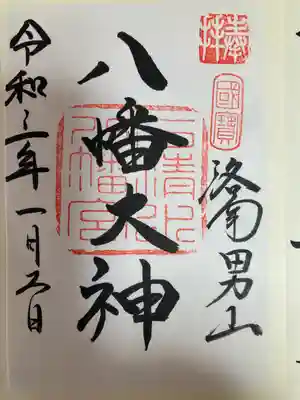 奉拝
國寶
洛南男山
八幡大神
石清水八幡宮
令和三年一月日